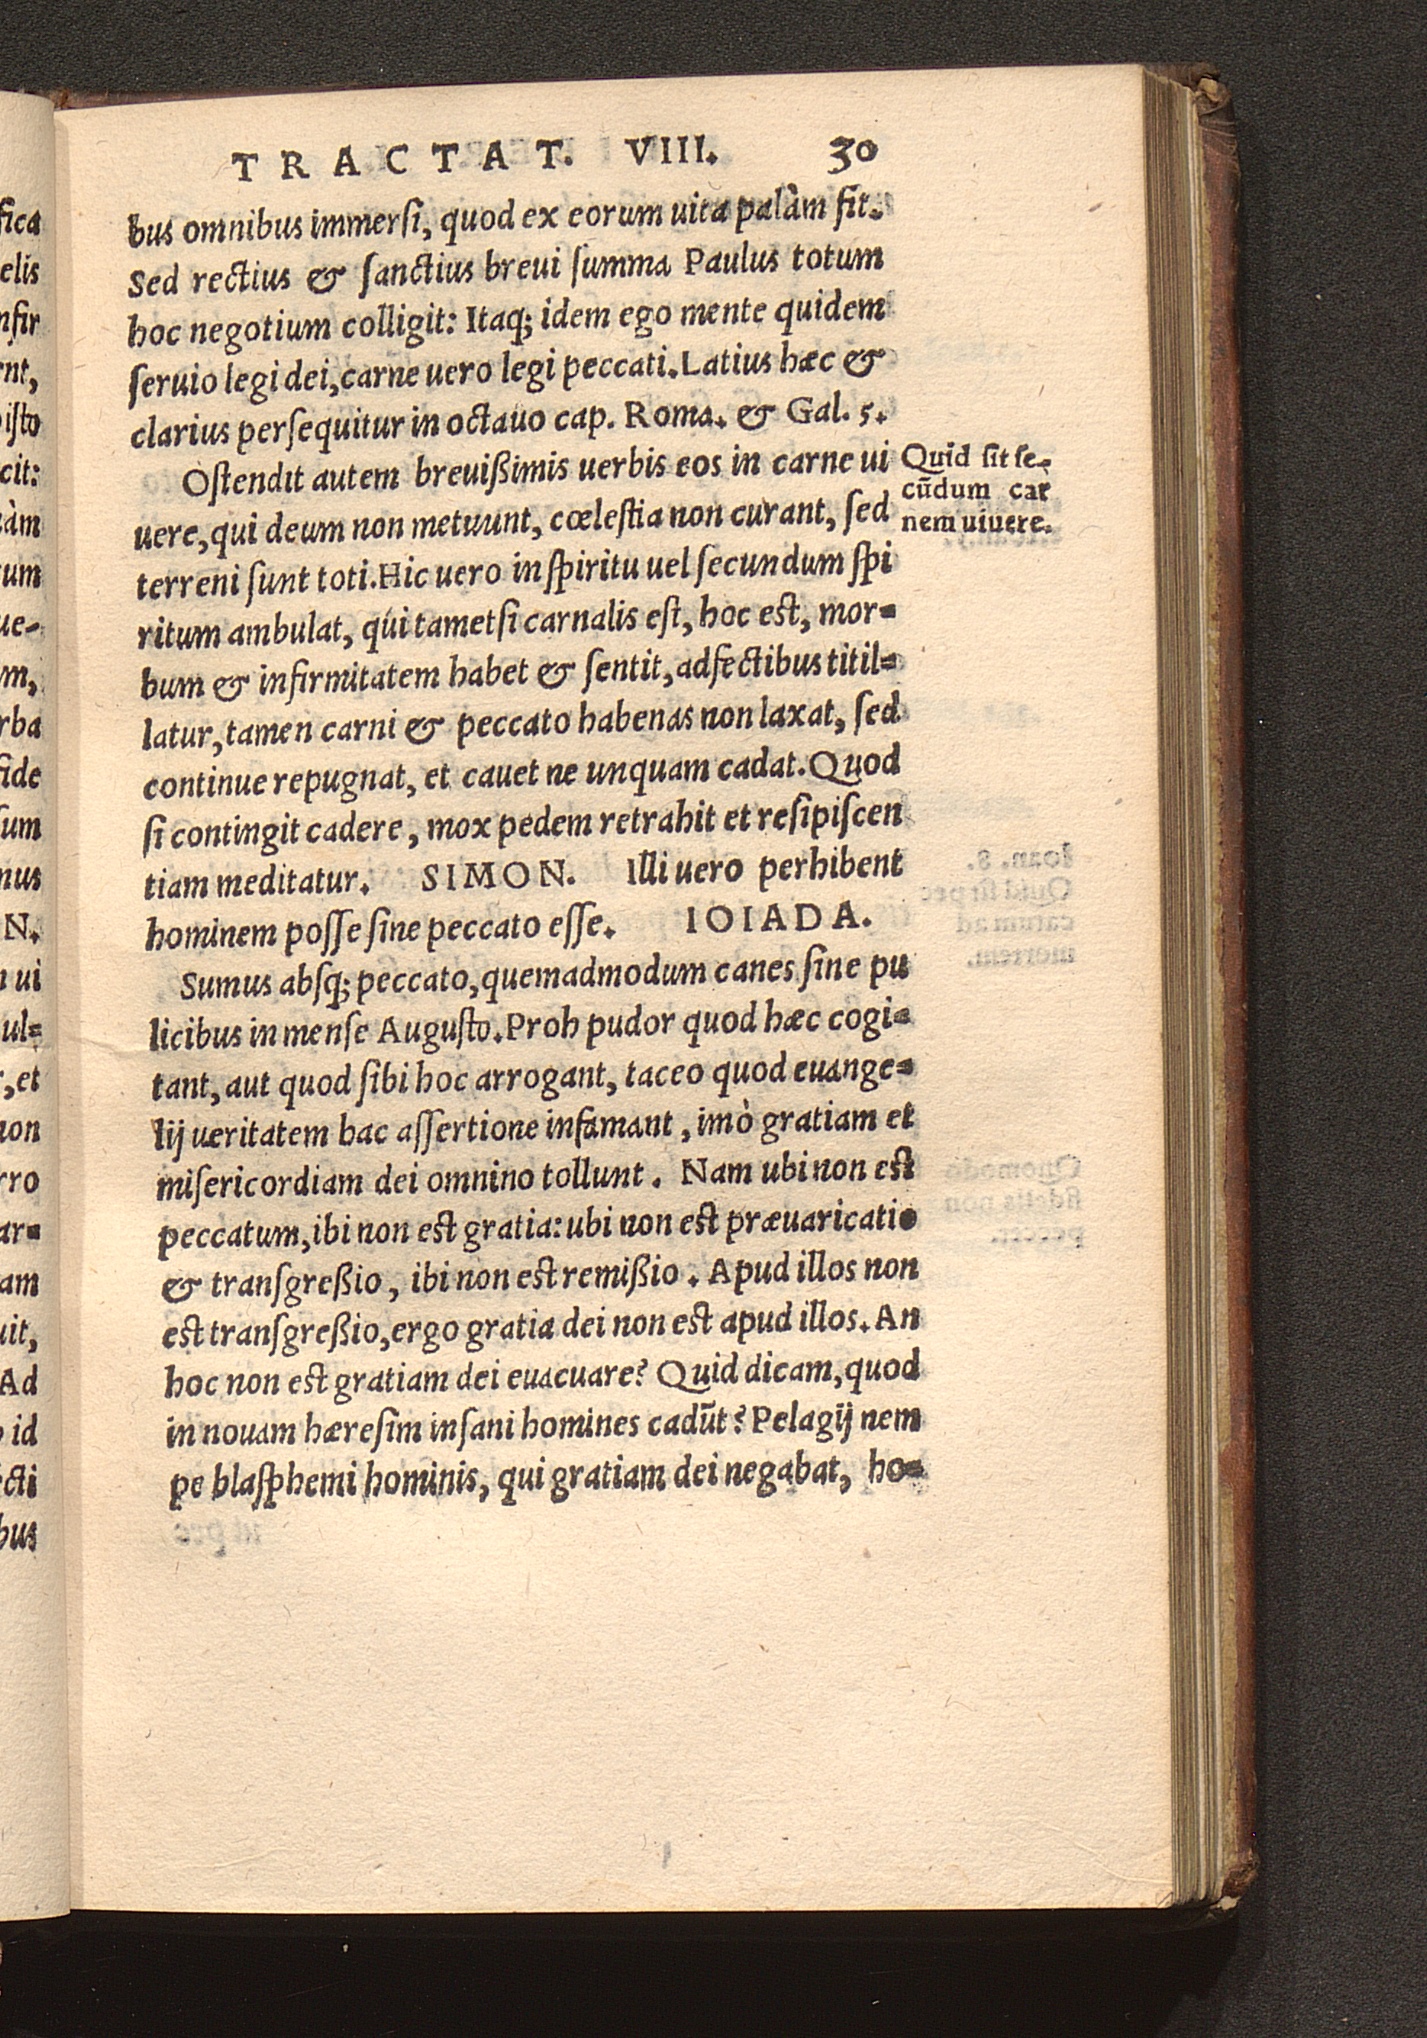 TRACTAT. VIII. 30
bus omnibus immersi, quod ex eorum uita palàm fit.
Sed rectius & sanctius breui summa Paulus totum
hoc negotium colligit: Itaq; idem ego mente quidem
seruio legi dei, carne uero legi peccati. Latius hæc &
clarius persequitur in octauo cap. Roma. & Gal. 5.
Ostendit autem breuißimis uerbis eos in carne ui
uere, qui deum non metuunt, cœlestia non curant, sed
terreni sunt toti. Hic uero in spiritu uel secundum spi
ritum ambulat, qui tametsi carnalis est, hoc est, mor=
bum & infirmitatem habet & sentit, adfectibus titil=
latur, tamen carni & peccato habenas non laxat, sed
continue repugnat, et cauet ne unquam cadat. Quod
si contingit cadere, mox pedem retrahit et resipiscen
tiam meditatur. SIMON. Illi uero perhibent
hominem posse sine peccato esse. IOIADA.
Sumus absq; peccato, quemadmodum canes sine pu
licibus in mense Augusto. Proh pudor quod hæc cogi=
tant, aut quod sibi hoc arrogant, taceo quod euange=
lij ueritatem hac assertione infamant, imò gratiam et
misericordiam dei omnino tollunt. Nam ubi non est
peccatum, ibi non est gratia: ubi non est præuaricatio
& transgreßio, ibi non est remißio. Apud illos non
est transgreßio, ergo gratia dei non est apud illos. An
hoc non est gratiam dei euacuare? Quid dicam, quod
in nouam hæresim insani homines cadūt? Pelagij nem
pe blasphemi hominis, qui gratiam dei negabat, ho=
Quid sit se-
cūdum car
nem uiuere.